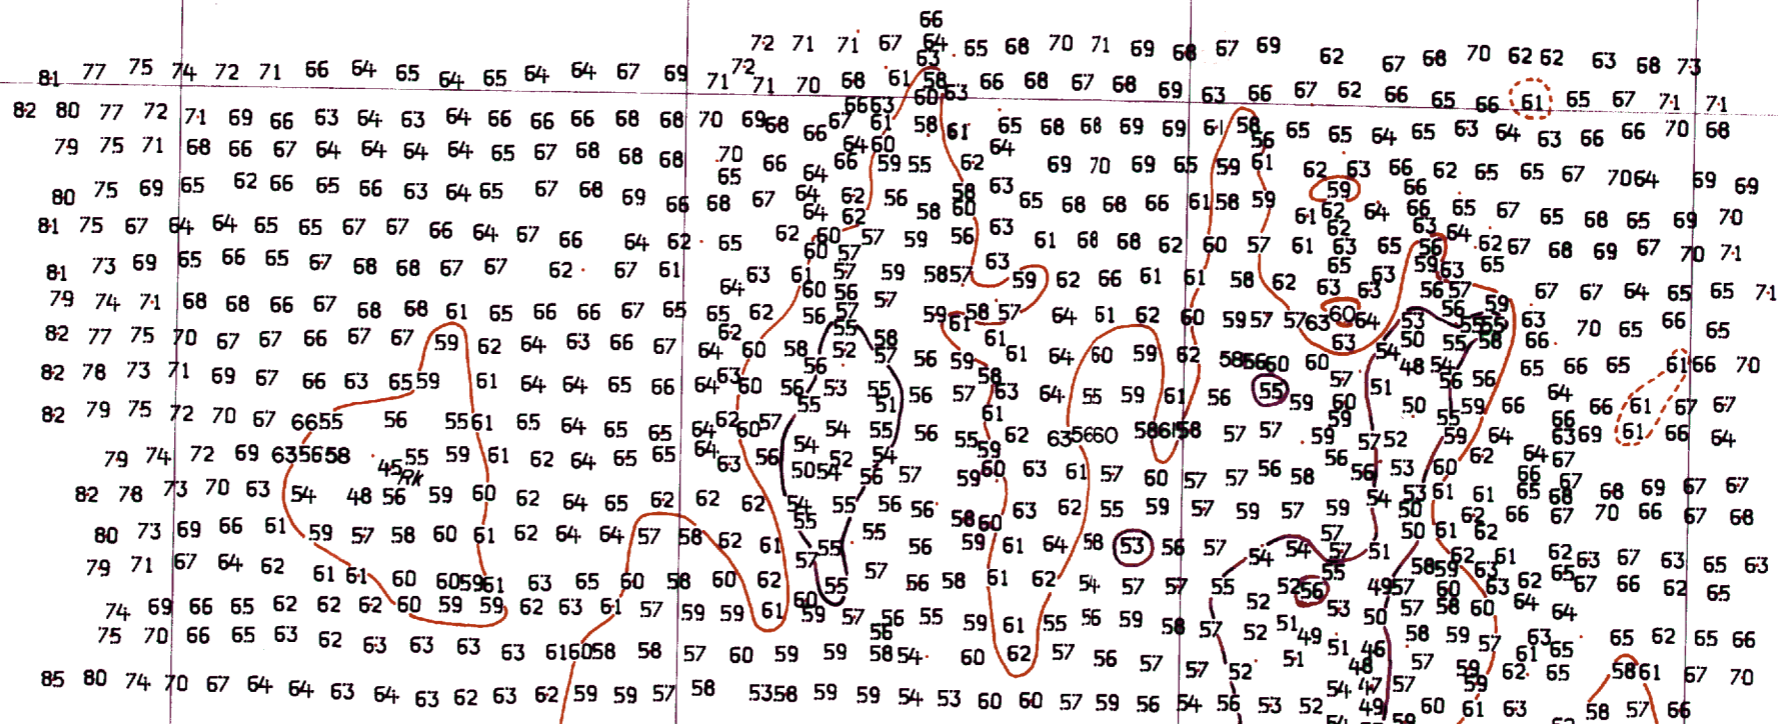 66
72 71 71 67 64 65 68 70 71 69 68 67 69 62 67 68 70 62 62 63 68 73
63
81 77 75 74 72 71 66 64 65 64 65 64 64 67 69 71 72 71 70 68 61 58 66 68 67 68 69 63 66 67 62 66 65 66 61 65 67 71 71
66 63 60 63
82 80 77 72 71 69 66 63 64 63 64 66 66 66 68 68 70 69 68 66 67 61 58 61 65 68 68 69 69 61 58 65 65 64 65 63 64 63 66 66 70 68
64 60 64 56
79 75 71 68 66 67 64 64 64 64 65 67 68 68 68 70 66 64 66 59 55 62 69 70 69 65 59 61 62 63 66 62 65 65 67 70 64 69 69
65 59
80 75 69 65 62 66 65 66 63 64 65 67 68 69 66 68 67 64 62 56 58 63 65 68 68 66 61 58 59 61 62 64 66 65 67 65 68 65 69 70
64 62 58 60 62 63 64
81 75 67 64 64 65 65 67 67 66 64 67 66 64 62 65 62 60 57 59 56 63 61 68 68 62 60 57 61 63 65 56 62 67 68 69 67 70 71
60 57
81 73 69 65 66 65 67 68 68 67 67 62 67 61 64 63 61 57 59 58 57 63 59 62 66 61 61 58 62 65 63 59 63 65
60 56 57 63 63 56 57
79 74 71 68 68 66 67 68 68 61 65 66 66 67 65 65 62 56 57 59 58 57 64 61 62 60 59 57 57 63 60 64 53 56 59 63 67 67 64 65 65 71
62 55 58 61 61 63 55 55
82 77 75 70 67 67 66 67 67 59 62 64 63 66 67 64 60 58 52 57 56 59 61 64 60 59 62 58 56 60 60 54 50 55 58 66 70 65 66 65
63 56 58 57 48 54
82 78 73 71 69 67 66 63 65 59 61 64 64 65 66 64 60 56 53 55 56 57 63 64 55 59 61 56 55 59 60 51 50 56 56 64 65 66 65 61 66 70
55 51 61 59 55 59 66
82 79 75 72 70 67 66 55 56 55 61 65 64 65 65 64 62 60 57 54 55 56 55 62 63 56 60 58 61 58 57 57 59 57 52 59 64 63 69 66 61 67 67
54 59 61 66 64
79 74 72 69 63 56 58 45 Rk 55 59 61 62 64 65 65 64 63 56 50 54 52 54 56 57 59 60 63 61 57 60 57 57 56 58 56 56 53 60 62 66 64 67
82 78 73 70 63 54 48 56 59 60 62 64 65 62 62 62 54 55 56 56 58 60 63 62 55 59 57 59 57 59 54 53 61 61 65 68 68 69 67 67
55 50 62 66 67 70 66 67 68
80 73 69 66 61 59 57 58 60 61 62 64 64 57 58 62 61 55 55 56 59 61 64 58 53 56 57 54 54 57 57 51 50 61 62
57 55 58 59 62 61 62 63 67 63 65 63
79 71 67 64 62 61 61 60 60 59 61 63 65 60 58 60 62 55 57 56 58 61 62 54 57 57 55 52 56 49 57 60 63 62 65 67 66 62 65
60 52 53
74 69 66 65 62 62 62 60 59 59 62 63 61 57 59 59 61 59 57 56 55 59 61 55 56 59 58 57 52 51 49 57 58 60 64 64
56 51 46
75 70 66 65 63 62 63 63 63 63 61 60 58 58 57 60 59 59 58 54 60 62 57 56 57 57 52 51 48 58 59 57 63 61 65 65 62 65 66
85 80 74 70 67 64 64 63 64 63 62 63 62 59 59 57 58 53 58 59 59 54 53 60 60 57 59 56 54 56 53 52 54 47 57 57 59 59 62 65 58 61 67 70
54 49 59 60 61 63 58 57 66